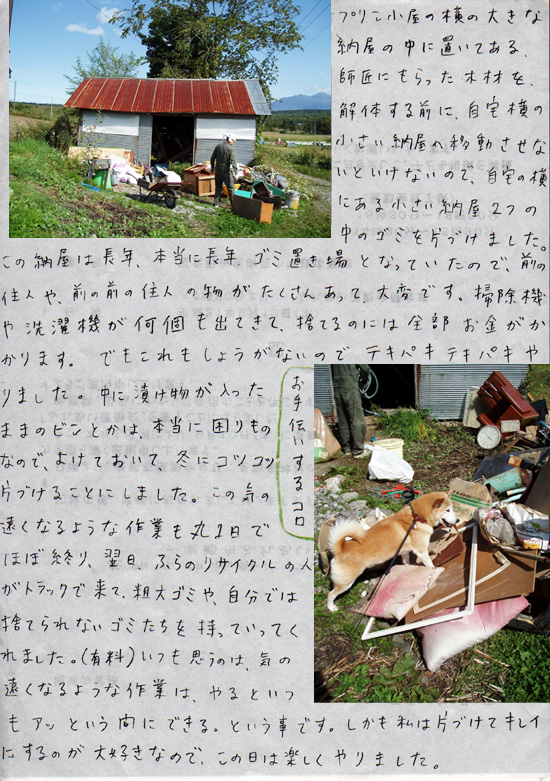 プリン小屋の横の大きな
納屋の中に置いてある、
師匠にもらった木材を、
解体する前に、自宅横の
小さい納屋へ移動させな
いといけないので、自宅の横
にある小さい納屋2つの
中のゴミを片づけました。
この納屋は長年、本当に長年、ゴミ置き場となっていたので、前の
住人や、前の前の住人の物がたくさんあって大変です。掃除機
や洗濯機が何個も出てきて、捨てるのには全部お金がか
かります。でもこれもしょうがないのでテキパキテキパキや
りました。中に漬け物が入った
ままのビンとかは、本当に困りもの
なので、よけておいて、冬にコツコツ
片づけることにしました。この気の
遠くなるような作業も丸1日で
ほぼ終り、翌日、ふらのリサイクルの人
がトラックで来て、粗大ゴミや、自分では
捨てられないゴミたちを持っていってく
れました。(有料)いつも思うのは、気の
遠くなるような作業は、やるといつ
もアッという間にできる。という事です。しかも私は片づけてキレイ
にするのが大好きなので、この日は楽しくやりました。
お手伝いするコロ